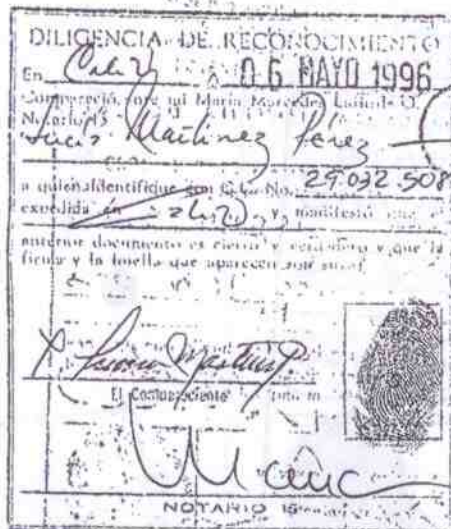 DILIGENCIA DE RECONOCIMIENTO
En Cali a 06 MAYO 1996
Compareció ante mi Maria Mercedes
Notario 15
Lucia Martinez Pérez
a quien identifiqué con C.C. No. 29.032.508
expedida en y manifestó que el
anterior documento es cierto y verdadero y que la
firma y la huella que aparecen son suyas
El Compareciente
NOTARIO 15